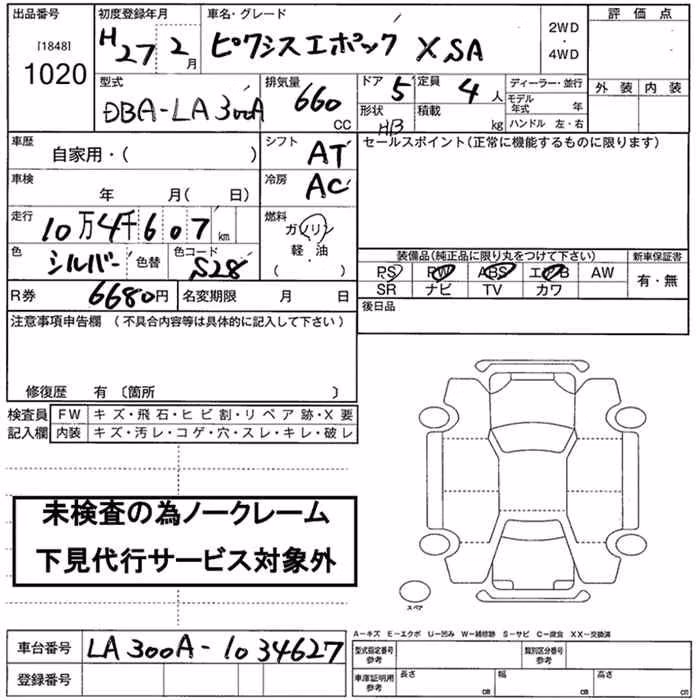 出品番号 初度登録年月 車名・グレード 評価点
[1848]
1020
H27 2月 ピクシスエポック XSA 2WD・4WD
外装 内装
型式 排気量 ドア 定員 ディーラー・並行
DBA-LA300A 660 CC 5 4人 モデル年式 年
形状 HB 積載 kg ハンドル 左・右
車歴 シフト セールスポイント(正常に機能するものに限ります)
自家用・( ) AT
車検 冷房
年 月( 日) AC
走行 燃料
10万4千607km ガソリン
軽・油
( )
色 シルバー 色替 色コード S28
装備品(純正品に限り丸をつけて下さい) 新車保証書
PS PW ABS エアB AW 有・無
SR ナビ TV カワ
R券 6680円 名変期限 月 日 後日品
注意事項申告欄 (不具合内容等は具体的に記入して下さい)
修復歴 有 〔箇所 〕
検査員 FW キズ・飛石・ヒビ割・リペア跡・X要
記入欄 内装 キズ・汚レ・コゲ・穴・スレ・キレ・破レ
未検査の為ノークレーム
下見代行サービス対象外
スペア
A−キズ E−エクボ U−凹み W−補修跡 S−サビ C−腐食 XX−交換済
車台番号 LA300A-1034627
型式指定番号 参考 類別区分番号 参考
登録番号
車庫証明用 参考 長さ cm 幅 cm 高さ cm